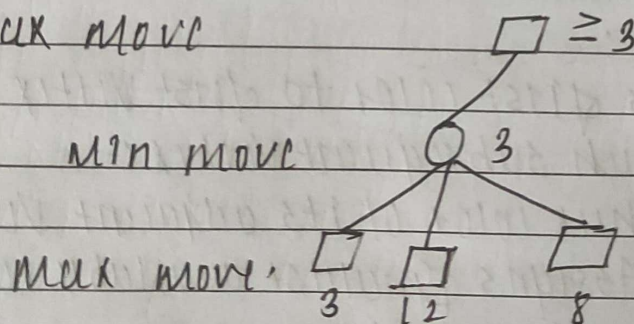 ax move ≥ 3
Min move 3
max move.
3 12 8